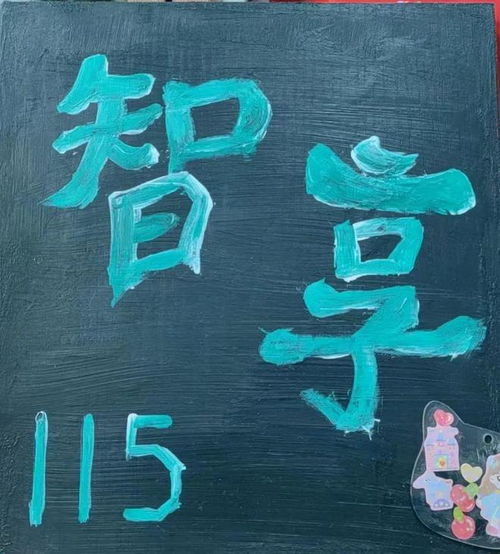 智享
115